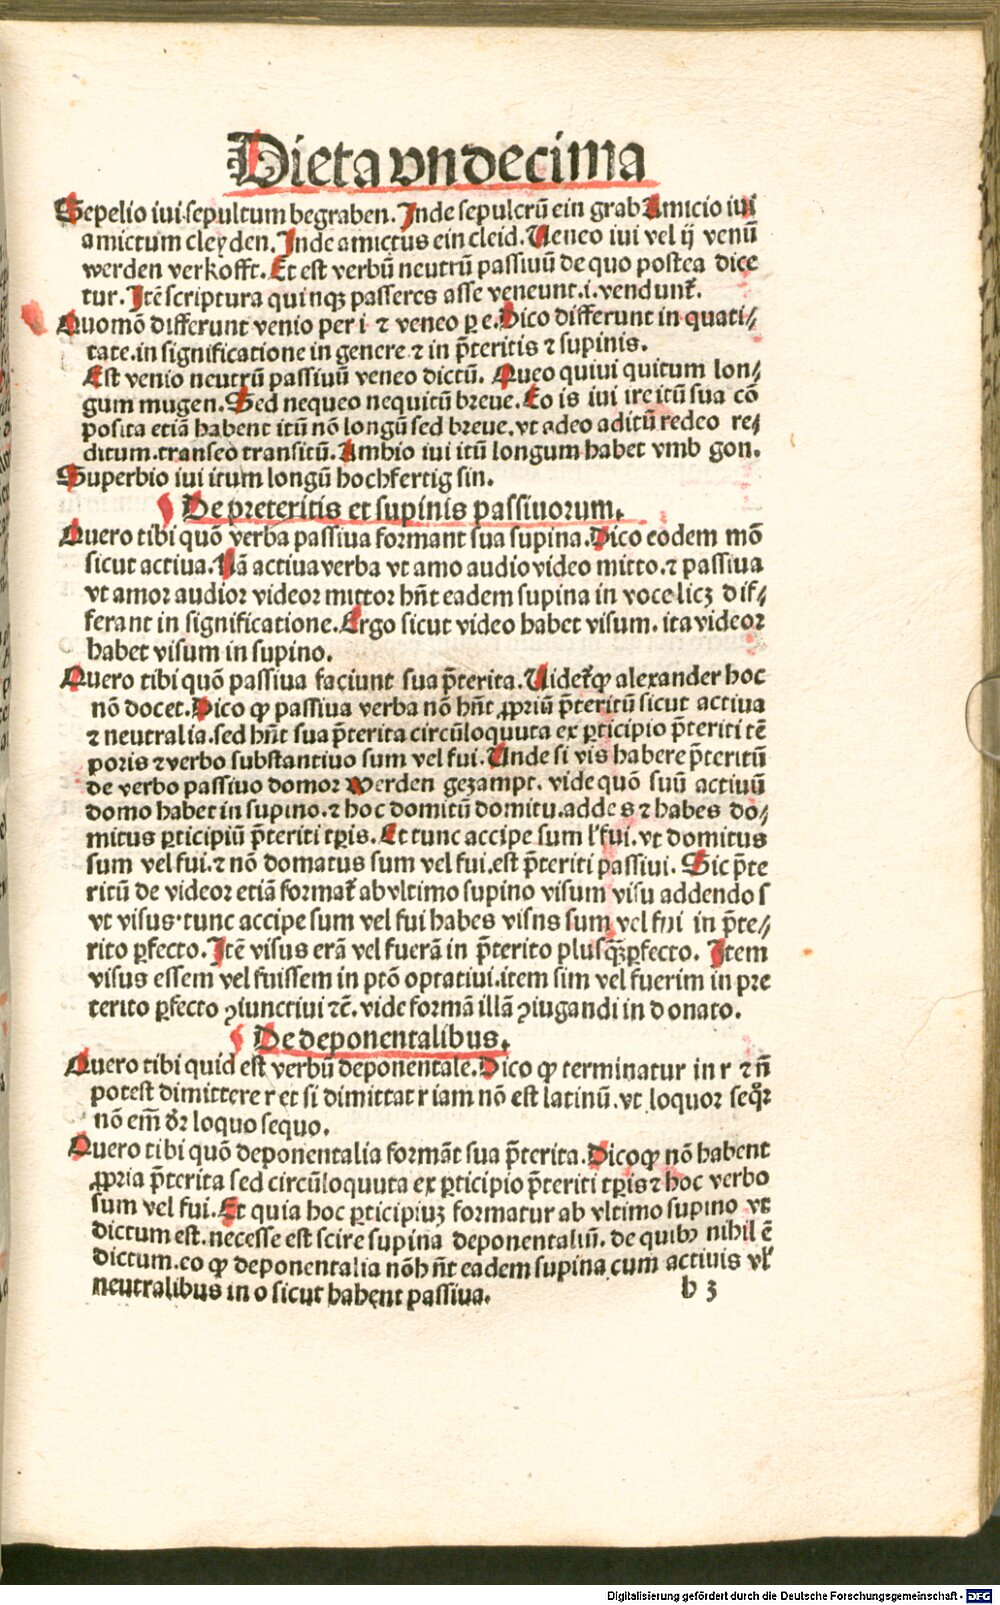 Dieta vndecima
Sepelio iui sepultum begraben. Inde sepulcrū ein grab Amicio iui
amictum cleyden. Inde amictus ein cleid. Ueneo iui vel ij venū
werden verkofft. Et est verbū neutrū passiuū de quo postea dice
tur. Itē scriptura quinqꝫ passeres asse veneunt .i. vendunt̄.
Quomō differunt venio per i ⁊ veneo ꝑ e. Dico differunt in quati⸗
tate. in significatione in genere ⁊ in p̄teritis ⁊ supinis.
Est venio neutrū passiuū veneo dictū. Queo quiui quitum lon⸗
gum mugen. Sed nequeo nequitū breue. Eo is iui ire itū sua cō
posita etiā habent itū nō longū sed breue. vt adeo aditū redeo re⸗
ditum. transeo transitū. Ambio iui itū longum habet vmb gon.
Superbio iui itum longū hochfertig sin.
De preteritis et supinis passiuorum.
Quero tibi quō verba passiua formant sua supina. Dico eodem mō
sicut actiua. Nā actiua verba vt amo audio video mitto. ⁊ passiua
vt amor audior videor mittor hn̄t eadem supina in voce licꝫ dif⸗
ferant in significatione. Ergo sicut video habet visum. ita videor
habet visum in supino.
Quero tibi quō passiua faciunt sua p̄terita. Uidet̄ ꝙ alexander hoc
nō docet. Dico ꝙ passiua verba nō hn̄t ꝓpriū p̄teritū sicut actiua
⁊ neutralia. sed hn̄t sua p̄terita circūloquuta ex ꝑticipio p̄teriti tē
poris ⁊ verbo substantiuo sum vel fui. Unde si vis habere p̄teritū
de verbo passiuo domor werden gezampt. vide quō suū actiuū
domo habet in supino. ⁊ hoc domitū domitu. adde s ⁊ habes do⸗
mitus ꝑticipiū p̄teriti tꝑis. Et tunc accipe sum l̓ fui. vt domitus
sum vel fui. ⁊ nō domatus sum vel fui. est p̄teriti passiui. Sic p̄te
ritū de videor etiā format̄ ab vltimo supino visum visu addendo s
vt visus. tunc accipe sum vel fui habes visns sum vel fui in p̄te⸗
rito ꝑfecto. Itē visus erā vel fuerā in p̄terito plusq̄ꝫꝑfecto. Item
visus essem vel fuissem in ptō optatiui. item sim vel fuerim in pre
terito ꝑfecto ꝯiunctiui ⁊c̄. vide formā illā ꝯiugandi in donato.
De deponentalibus.
Quero tibi quid est verbū deponentale. Dico ꝙ terminatur in r ⁊ n̄
potest dimittere r et si dimittat r iam nō est latinū. vt loquor seq̄r
nō em̄ dr̄ loquo sequo.
Quero tibi quō deponentalia formāt sua p̄terita. Dico ꝙ nō habent
ꝓpria p̄terita sed circūloquuta ex ꝑticipio p̄teriti tꝑis ⁊ hoc verbo
sum vel fui. Et quia hoc ꝑticipiuꝫ formatur ab vltimo supino vt
dictum est. necesse est scire supina deponentaliū. de quibꝰ nihil ē
dictum. eo ꝙ deponentalia nō hn̄t eadem supina cum actiuis vl̓
neutralibus in o sicut habent passiua.
b 3
Digitalisierung gefördert durch die Deutsche Forschungsgemeinschaft - DFG